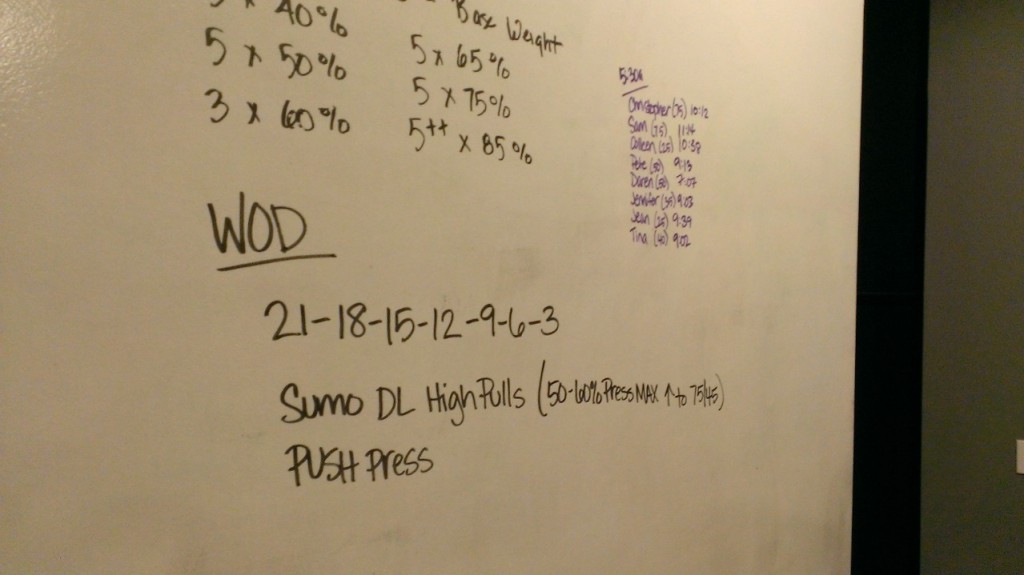 x 40%
5 x 50%
3 x 60%
Base Weight
5 x 65%
5 x 75%
5++ x 85%
5:30A
Christopher (75) 10:12
Sam (75) 11:14
Colleen (25) 10:39
Pete (50) 9:13
Daren (50) 7:07
Jennifer (35) 9:03
Jean (25) 9:39
Tina (40) 9:02
WOD
21-18-15-12-9-6-3
Sumo DL High Pulls (50-60% Press MAX ↑ to 75/45)
PUSH Press